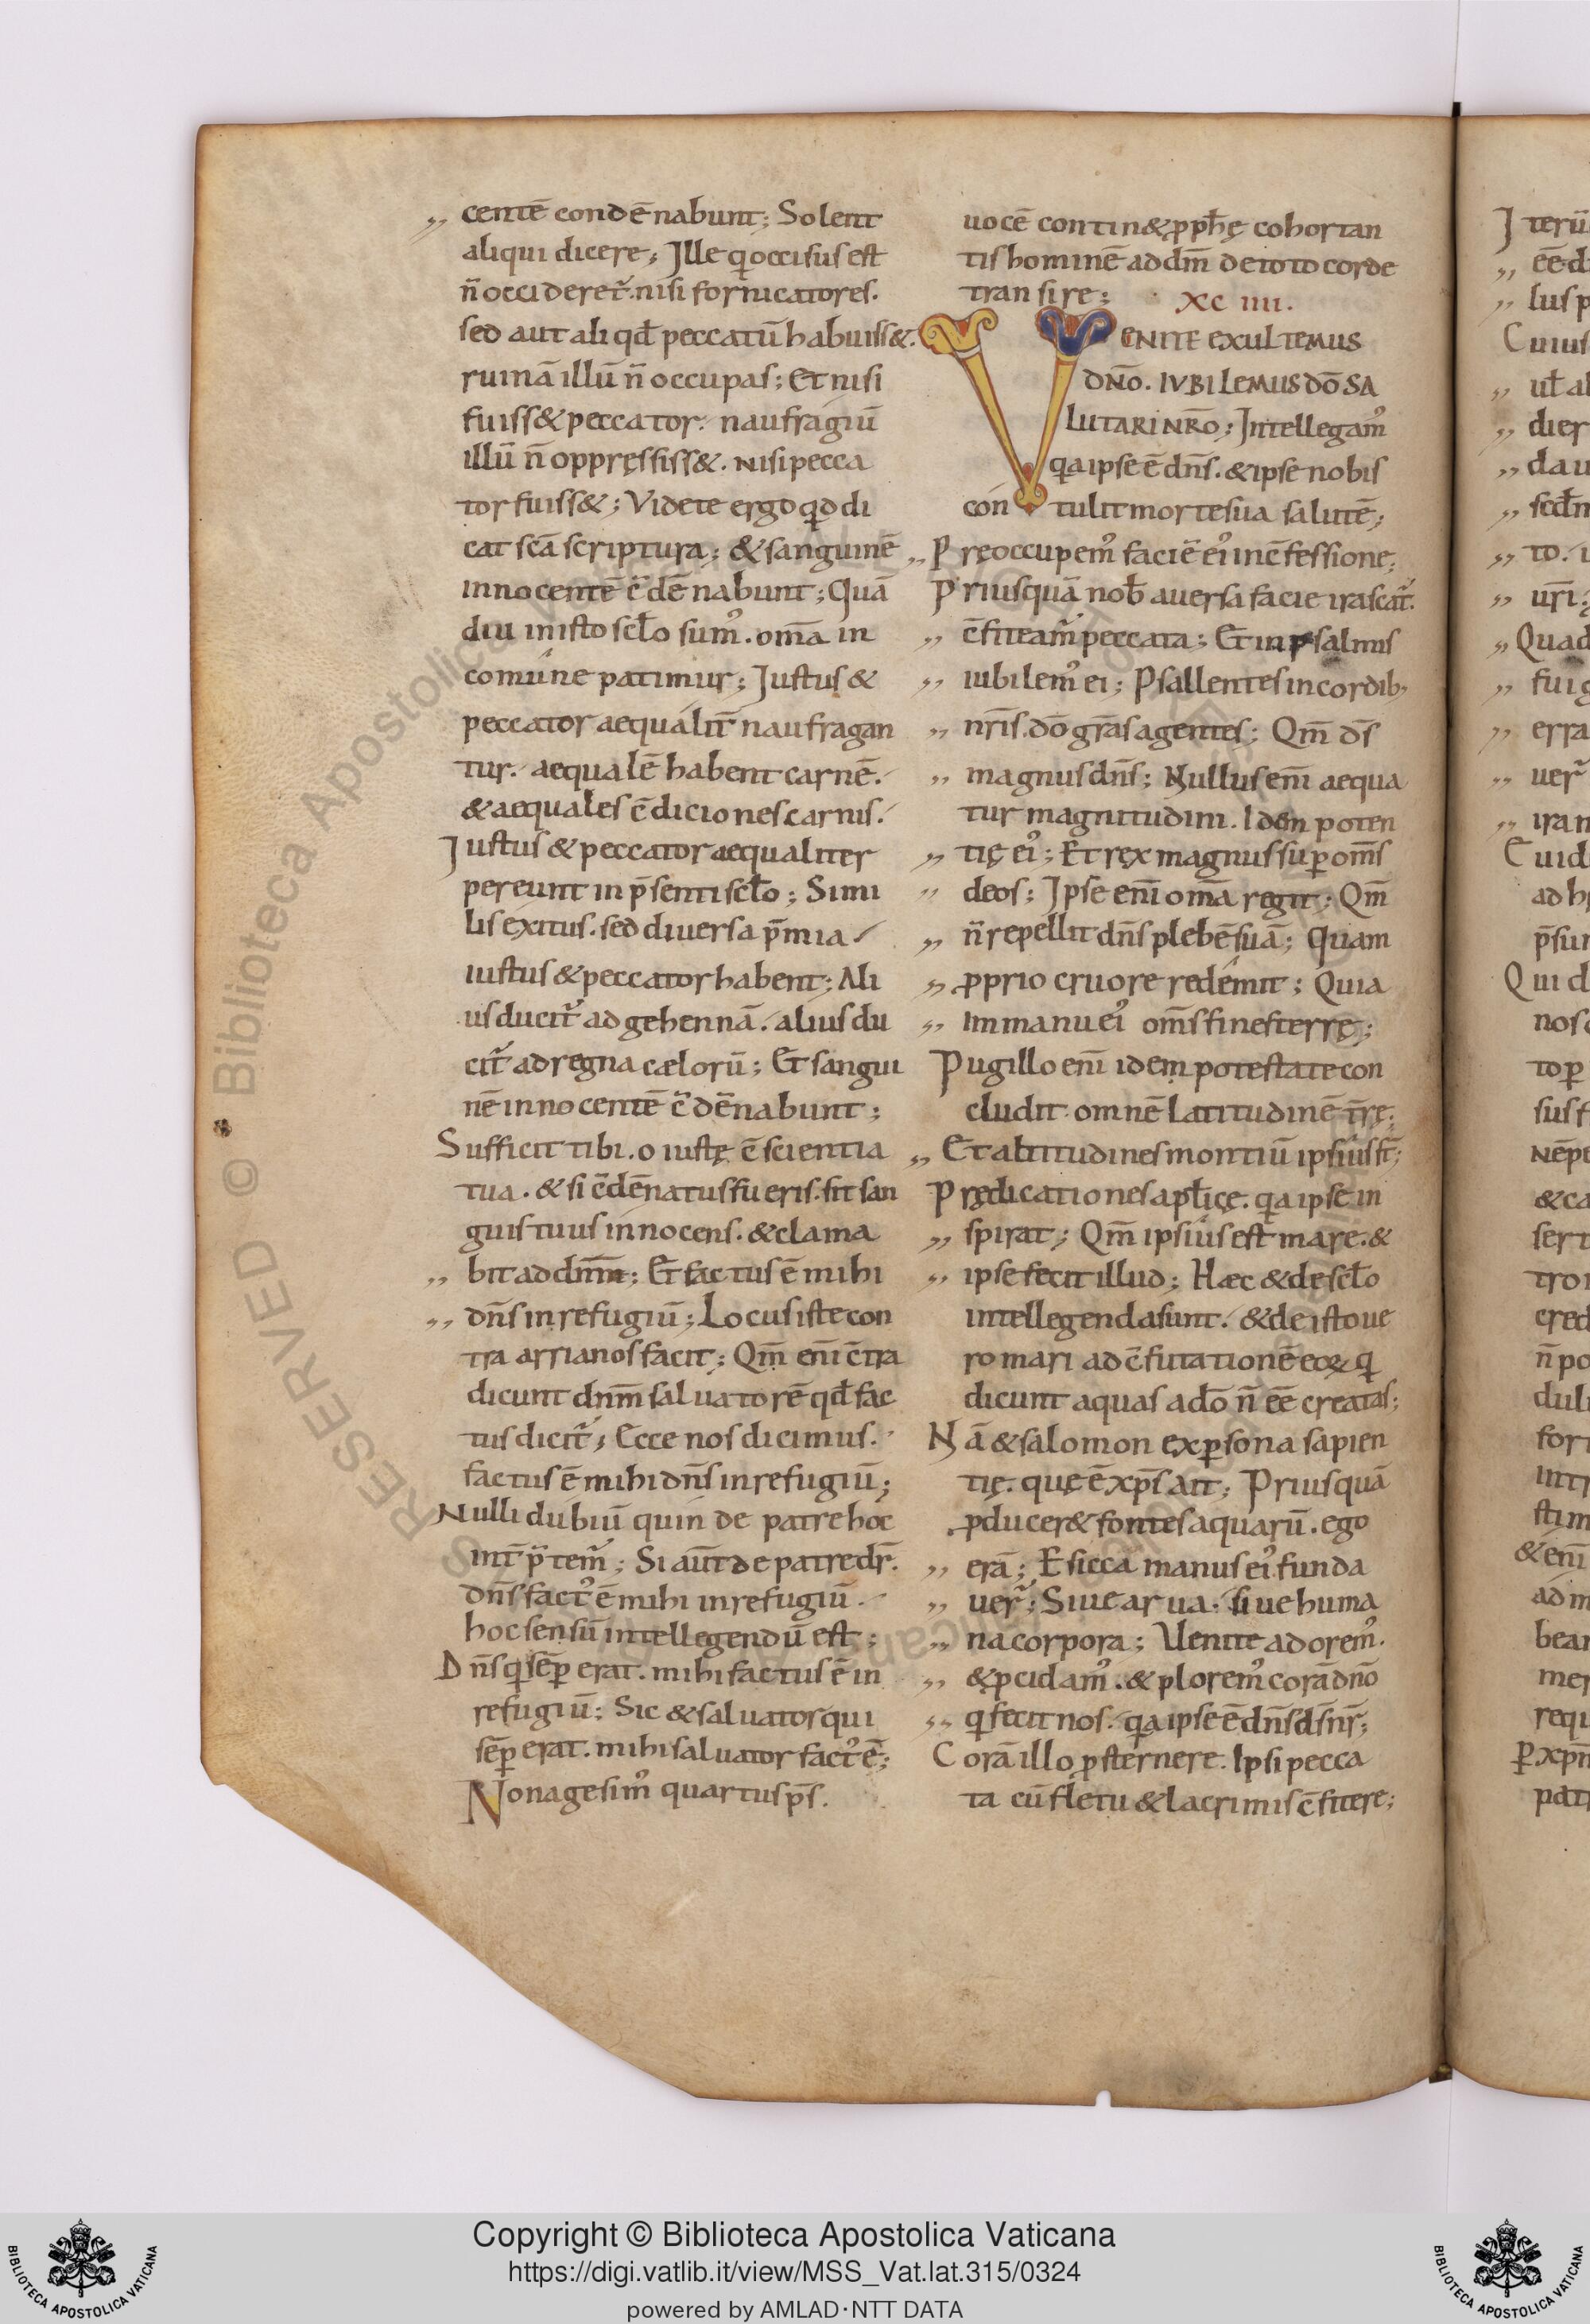 centē condēnabunt; Solent
aliqui dicere; Ille q̇ occisus est
n̄ occideret᷑. nisi fornicatores.
sed aut aliqđ peccatū habuiss&.
ruinā illū n̄ occupas; Et nisi
fuiss& peccator. naufragiū
illū n̄ oppręssiss&. nisi pecca
tor fuiss&; Videte ergo qđ di
cat scā scriptura; & sanguinē
innocentē c̄dēnabunt; Quā
diu in isto scło sum᾿. om̄a in
comune patimur; Iustus &
peccator aequalit̄ naufragan
tur. aequalē habent carnē.
& aequales c̄diciones carnis.
Iustus & peccator aequaliter
pereunt in p̄senti scło; Simi
lis exitus. sed diuersa p̄mia
iustus & peccator habent; Ali
us ducit᷑ ad gehennā. alius du
cit᷑ ad regna cęlorū; Et sangui
nē innocentē c̄dēnabunt;
Sufficit tibi. o iustę c̄scientia
tua. & si c̄dēnatus fueris. sit san
guis tuus innocens. & clama
bit ad dn̄m; Et factus ē mihi
dn̄s in refugiū; Locus iste con
tra arrianos facit; Qm̄ eni̅ c̄tra
dicunt dn̄m saluatorē qđ fac
tus dicit᷑; Ecce nos dicimus.
factus ē mihi dn̄s in refugiū;
Nulli dubiū quin de patre hoc
int̄p̄tem᷑; Si aut̄ de patre dr̄.
dn̄s fact᾿ ē mihi in refugiū.
hoc sensū intellegendū est;
Dn̄s q̇ sēp̱ erat. mihi factus ē in
refugiū; Sic & saluator qui
sēp̱ erat. mihi saluator fact᾿ ē;
Nonagesim᾿ quartus ps̄.
uocē contin& ꝓph̄ę cohortan
tis hominē ad dm̄ de toto corde
transire; XCIIII.
VENITE EXULTEMUS
DN̄O. IVBILEMUS DŌ SA
LUTARI NR̄O; Intellegam᾿
qa ipse ē dn̄s. & ipse nobis
contulit morte sua salutē;
Pręoccupem᾿ faciē ei᾿ in c̄fessione;
Priusquā nob̄ auersa facie irascat᷑.
c̄fiteam᷑ peccata; Et in psalmis
iubilem᾿ ei; Psallentes in cordib;
nr̄is. dō gr̄as agentes; Qm̄ ds̄
magnus dn̄s; Nullus eni̅ aequa
tur magnitudini. Idem poten
tię ei᾿; Et ręx magnus sup̱ om̄s
deos; Ipse eni̅ om̄a regit; Qm̄
n̄ repellit dn̄s plebē suā; Quam
ꝓprio cruore redemit; Quia
in manu ei᾿ om̄s fines terrę;
Pugillo eni̅ idem potestate con
cludit omnē latitudinē t̄rę;
Et altitudines montiū ipsius st̄;
Prędicationes apłicę. qa ipse in
spirat; Qm̄ ipsius est mare. &
ipse fecit illud; Hæc & de scło
intellegenda sunt. & de isto ue
ro mari ad c̄futationē eoꝝ q̇
dicunt aquas a dō n̄ ēe creatas;
Nā & salomon ex p̱sona sapien
tię. quę ē xp̄s ait; Priusquā
ꝓducer& fontes aquarū. ego
erā; E sicca manus ei᾿ funda
uer᷑; Siue arua. siue huma
na corpora; Uenite adorem᾿.
& p̱cidam᾿. & plorem᾿ corā dn̄o
q̇ fecit nos. qa ipse ē dn̄s ds̄ nr̄;
Corā illo ꝓsternere. Ipsi pecca
ta cū fletu & lacrimis c̄fitere;
Copyright © Biblioteca Apostolica Vaticana
https://digi.vatlib.it/view/MSS_Vat.lat.315/0324
powered by AMLAD·NTT DATA